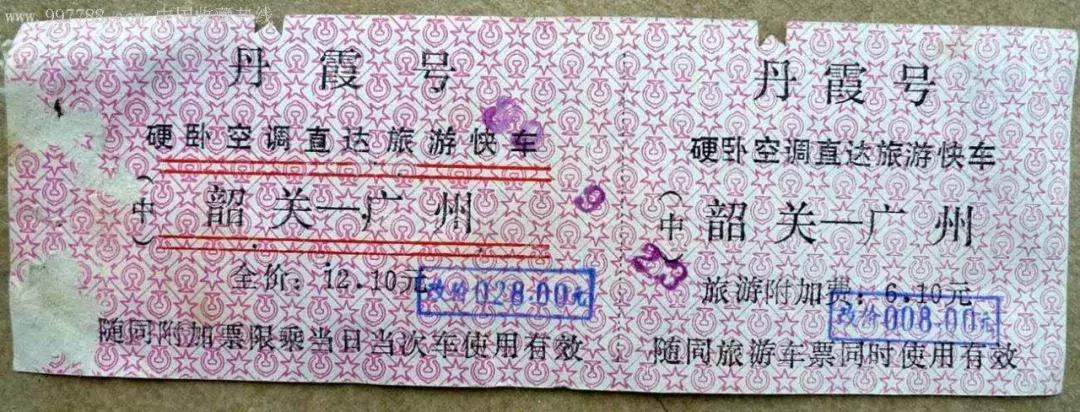 www.997788.com 中国收藏热线
丹霞号
硬卧空调直达旅游快车
(中) 韶关—广州
全价：12.10元
改价028.00元
随同附加票限乘当日当次车使用有效
9
23
丹霞号
硬卧空调直达旅游快车
(中) 韶关—广州
旅游附加费：6.10元
改价008.00元
随同旅游车票同时使用有效